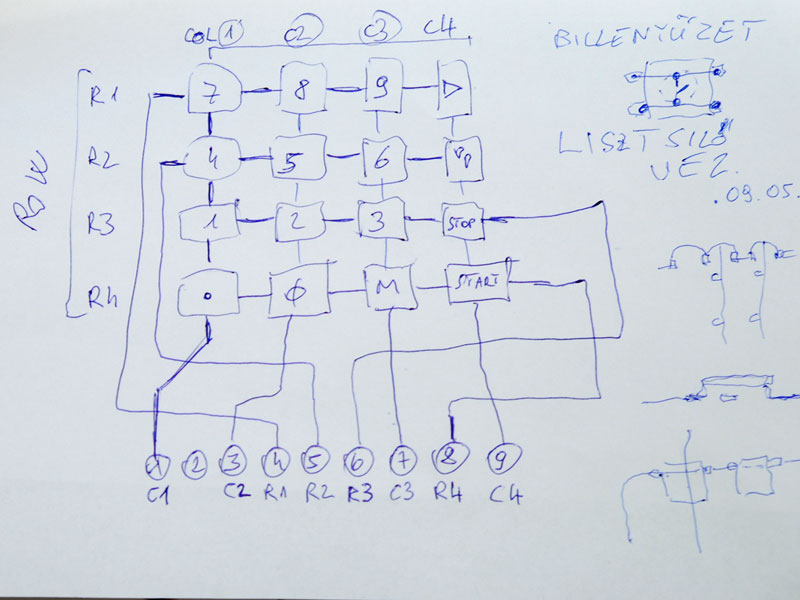 COL 1 C2 C3 C4
BILLENTYŰZET
R1 7 8 9 ▷
LISZT SILÓ
VEZ.
R2 4 5 6
.09.05.
ROW
R3 1 2 3 STOP
R4 . Φ M START
1 2 3 4 5 6 7 8 9
C1 C2 R1 R2 R3 C3 R4 C4